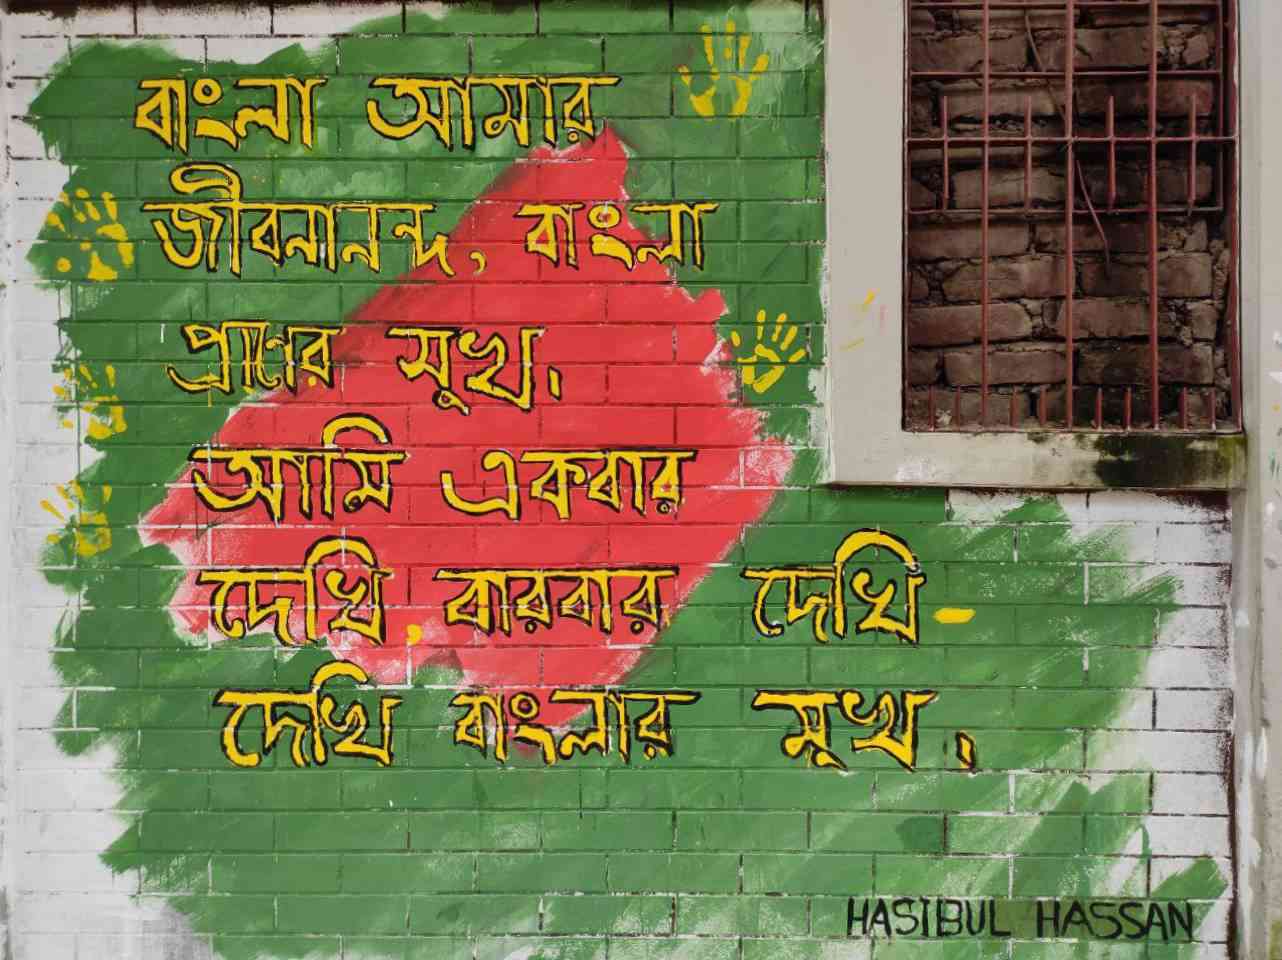 বাংলা আমার
জীবনানন্দ, বাংলা
প্রাণের সুখ.
আমি একবার
দেখি, বারবার দেখি-
দেখি বাংলার মুখ.
HASIBUL HASSAN